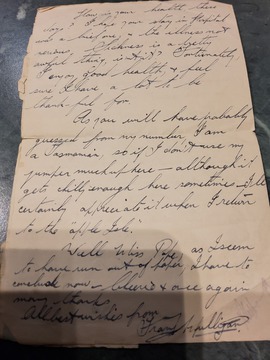 How is your health these
days? I hope your stay in Hospital
was a brief one, & the illness not
serious. Sickness is a
awful thing, isn't it? Fortunately,
I enjoy good health, & feel
sure I have a lot to be
thankful for.
As you will have probably
guessed from my number, I am
a Tasmanian, so if I don't use my
jumper much up here - although it
gets chilly enough here sometimes I'll
certainly appreciate it when I return
to the "Apple Isle".
Well Miss as I seem
to have run out of paper, I have to
conclude now - cheerio & once again
many thanks.
All best wishes from